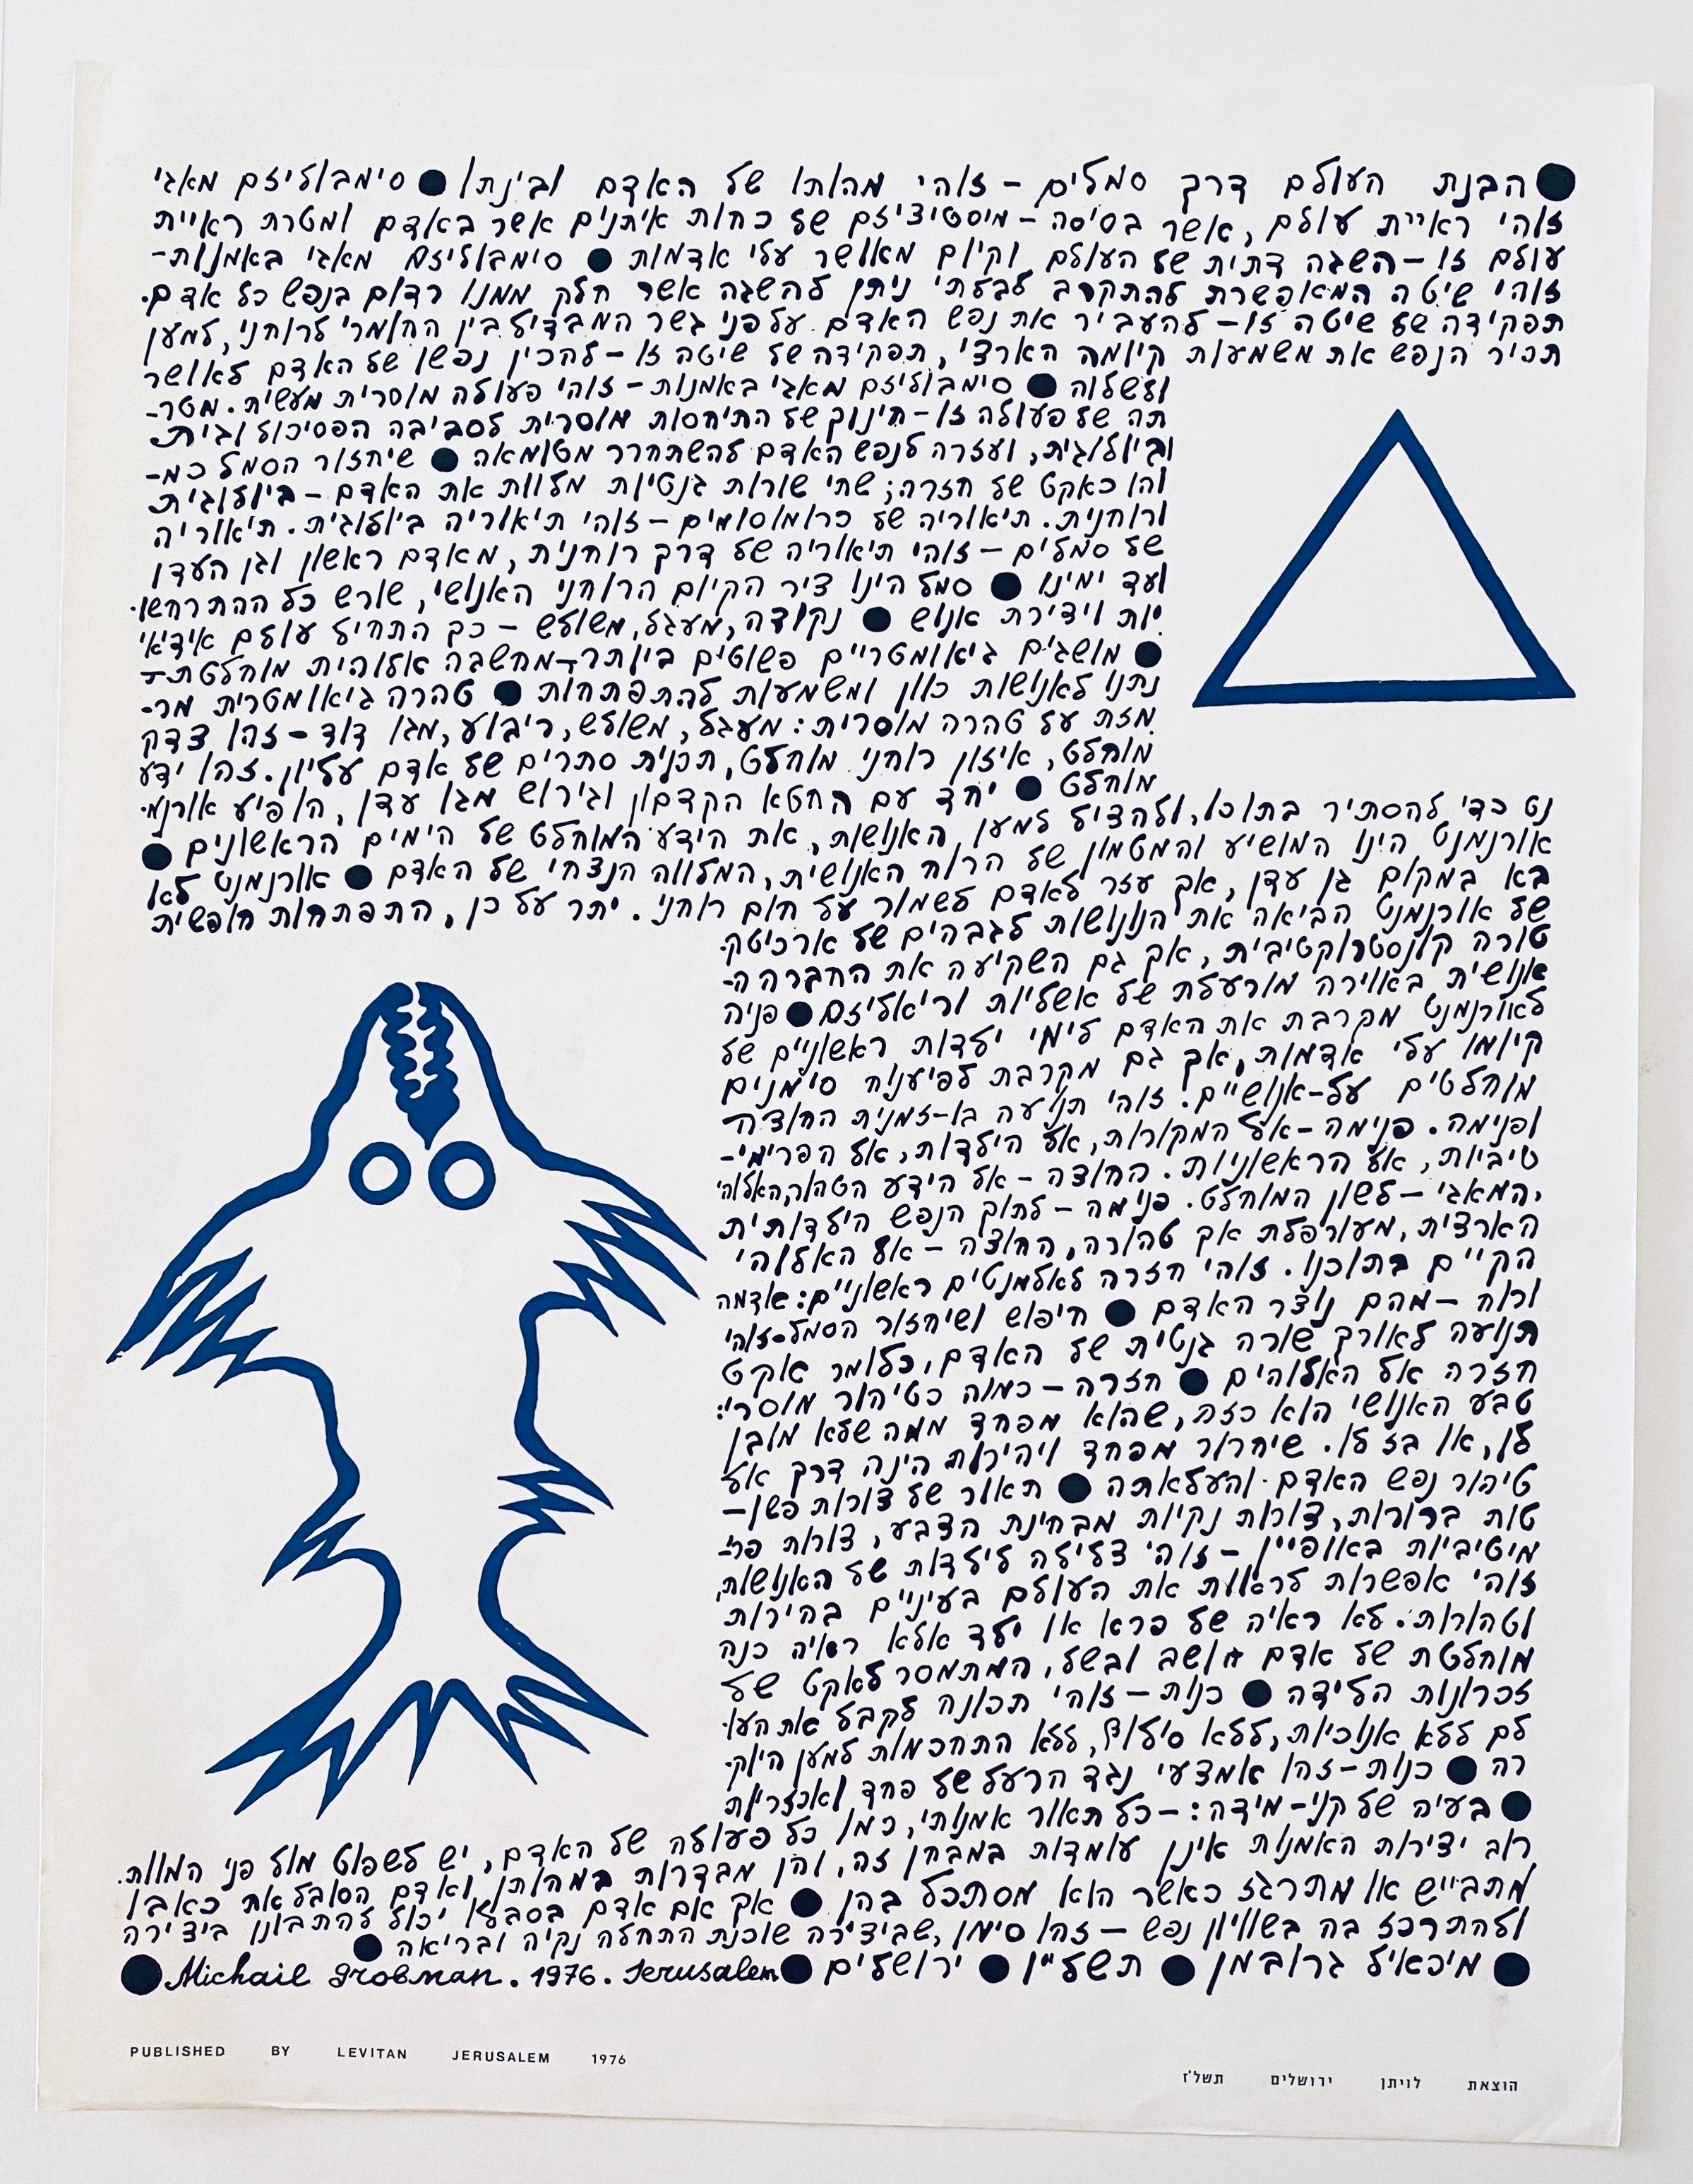 הבנת העולם דרך סמלים – זוהי מהותו של האדם ובינתו ● סימבוליזם מאגי
זוהי ראיית עולם, אשר בסיסה – מיסטיציזם של כחות איתנים אשר באדם ומטרת ראיית
עולם זו – השגה דתית של העולם וקיום מאושר עלי אדמות ● סימבוליזם מאגי באמנות –
זוהי שיטה המאפשרת להתקרב לבלתי ניתן להשגה אשר חלק ממנו רדום בנפש כל אדם.
תפקידה של שיטה זו – להעביר את נפש האדם על פני גשר המבדיל בין החומרי לרוחני, למען
תכיר הנפש את משמעות קיומה הארצי, תפקידה של שיטה זו – להכין נפשו של האדם לאושר
ולשלוה ● סימבוליזם מאגי באמנות – זוהי פעולה מוסרית מעשית. מטר-
תה של פעולה זו – חינוך של התיחסות מוסרית לסביבה הפסיכולוגית,
וביולוגית, ועזרה לנפש האדם להשתחרר מטומאה ● שיחזור הסמל כמ-
והו כאקט של חזרה; שתי שורות גנטיות מלוות את האדם – ביולוגית
ורוחנית. תיאוריה של כרומוסומים – זוהי תיאוריה ביולוגית. תיאוריה
של סמלים – זוהי תיאוריה של דרך רוחנית, מאדם ראשון וגן העדן
ועד ימינו ● סמל הינו ציר הקיום הרוחני האנושי, שורש כל ההתרחשו-
יות ויצירת אנוש ● נקודה, מעגל, משולש – כך התחיל עולם אידיאי
● מושגים גיאומטריים פשוטים ביותר – מחשבה אלוהית מוחלטת –
נתנו לאנושות כוון ומשמעות להתפתחות ● טהרה גיאומטרית מר-
מזת על טהרה מוסרית: מעגל, משולש, ריבוע, מגן דוד – זהו צדק
מוחלט, איזון רוחני מוחלט, תכנית סתרים של אדם עליון. זהו ידע
מוחלט ● יחד עם החטא הקדמון וגירוש מגן עדן, הופיע אורנמ-
נט כדי להסתיר בתוכו, ולהציל למען האנושות, את הידע המוחלט של הימים הראשונים ●
אורנמנט הינו המושיע והמטמון של הרוח האנושית, המלווה הנצחי של האדם ● אורנמנט לא
בא במקום גן עדן, אך עזר לאדם לשמור על חום רוחני. יתר על כן, התפתחות חופשית
של אורנמנט הביאה את האנושות לגבהים של ארכיטק-
טורה קונסטרוקטיבית, אך גם השקיעה את החברה ה-
אנושית באוירה מורעלת של אשליות וריאליזם ● פניה
לאורנמנט מקרבת את האדם לימי ילדות ראשוניים של
קיומו עלי אדמות, אך גם מקרבת לפיענוח סימנים
מוחלטים על-אנושיים. זוהי תנועה בו-זמנית החוצה
ופנימה. פנימה – אל המקורות, אל הילדות, אל הפרימי-
טיביות, אל הראשוניות. החוצה – אל הידע הטהור, האלוהי
המאגי – לשון המוחלט. פנימה – לתוך הנפש הילדותית
הארצית, מעורפלת אך טהורה, החוצה – אל האלוהי
הקיים בתוכנו. זוהי חזרה לאלמנטים ראשוניים: אדמה
ורוח – מהם נוצר האדם ● חיפוש ושיחזור הסמל – זוהי
תנועה לאורך שורה גנטית של האדם, כלומר אקט
חזרה אל האלוהים ● חזרה – כמוה כטיהור מוסרי:
טבע האנושי הוא כזה, שהוא מפחד ממה שלא מובן
לו, או בז לו. שיחרור מפחד ויהירות הינה דרך אל
טיהור נפש האדם והעלאתה ● תאור של צורות פשו-
טות ברורות, צורות נקיות מבחינת הצבע, צורות פר-
מיטיביות באופיין – זוהי צלילה לילדות של האנושות,
זוהי אפשרות לראות את העולם בעיניים בהירות
וטהורות. לא ראיה של פרא או ילד אלא ראיה כנה
מוחלטת של אדם חושב ובשל, המתמסר לאקט של
זכרונות הלידה ● כנות – זוהי תכונה לקבל את העו-
לם ללא אנוכיות, ללא סילוף, ללא התחכמות למען היוק-
רה ● כנות – זהו אמצעי נגד הרעל של פחד ואכזריות
● בעיה של קני-מידה: – כל תאור אמנותי, כמו כל פעולה של האדם, יש לשפוט מול פני המוות.
רוב יצירות האמנות אינן עומדות במבחן זה, והן מבדרות במהותן, ואדם הסובל את כאבו
מתבייש או מתרגז כאשר הוא מסתכל בהן ● אך אם אדם בסבלו יכול להתבונן ביצירה
ולהתרכז בה בשוויון נפש – זהו סימן, שביצירה שוכנת התחלה נקיה ובריאה ●
● מיכאיל גרובמן ● תשל"ו ● ירושלים ● Michail Grobman. 1976. Jerusalem ●
PUBLISHED BY LEVITAN JERUSALEM 1976
הוצאת לויתן ירושלים תשל'ז